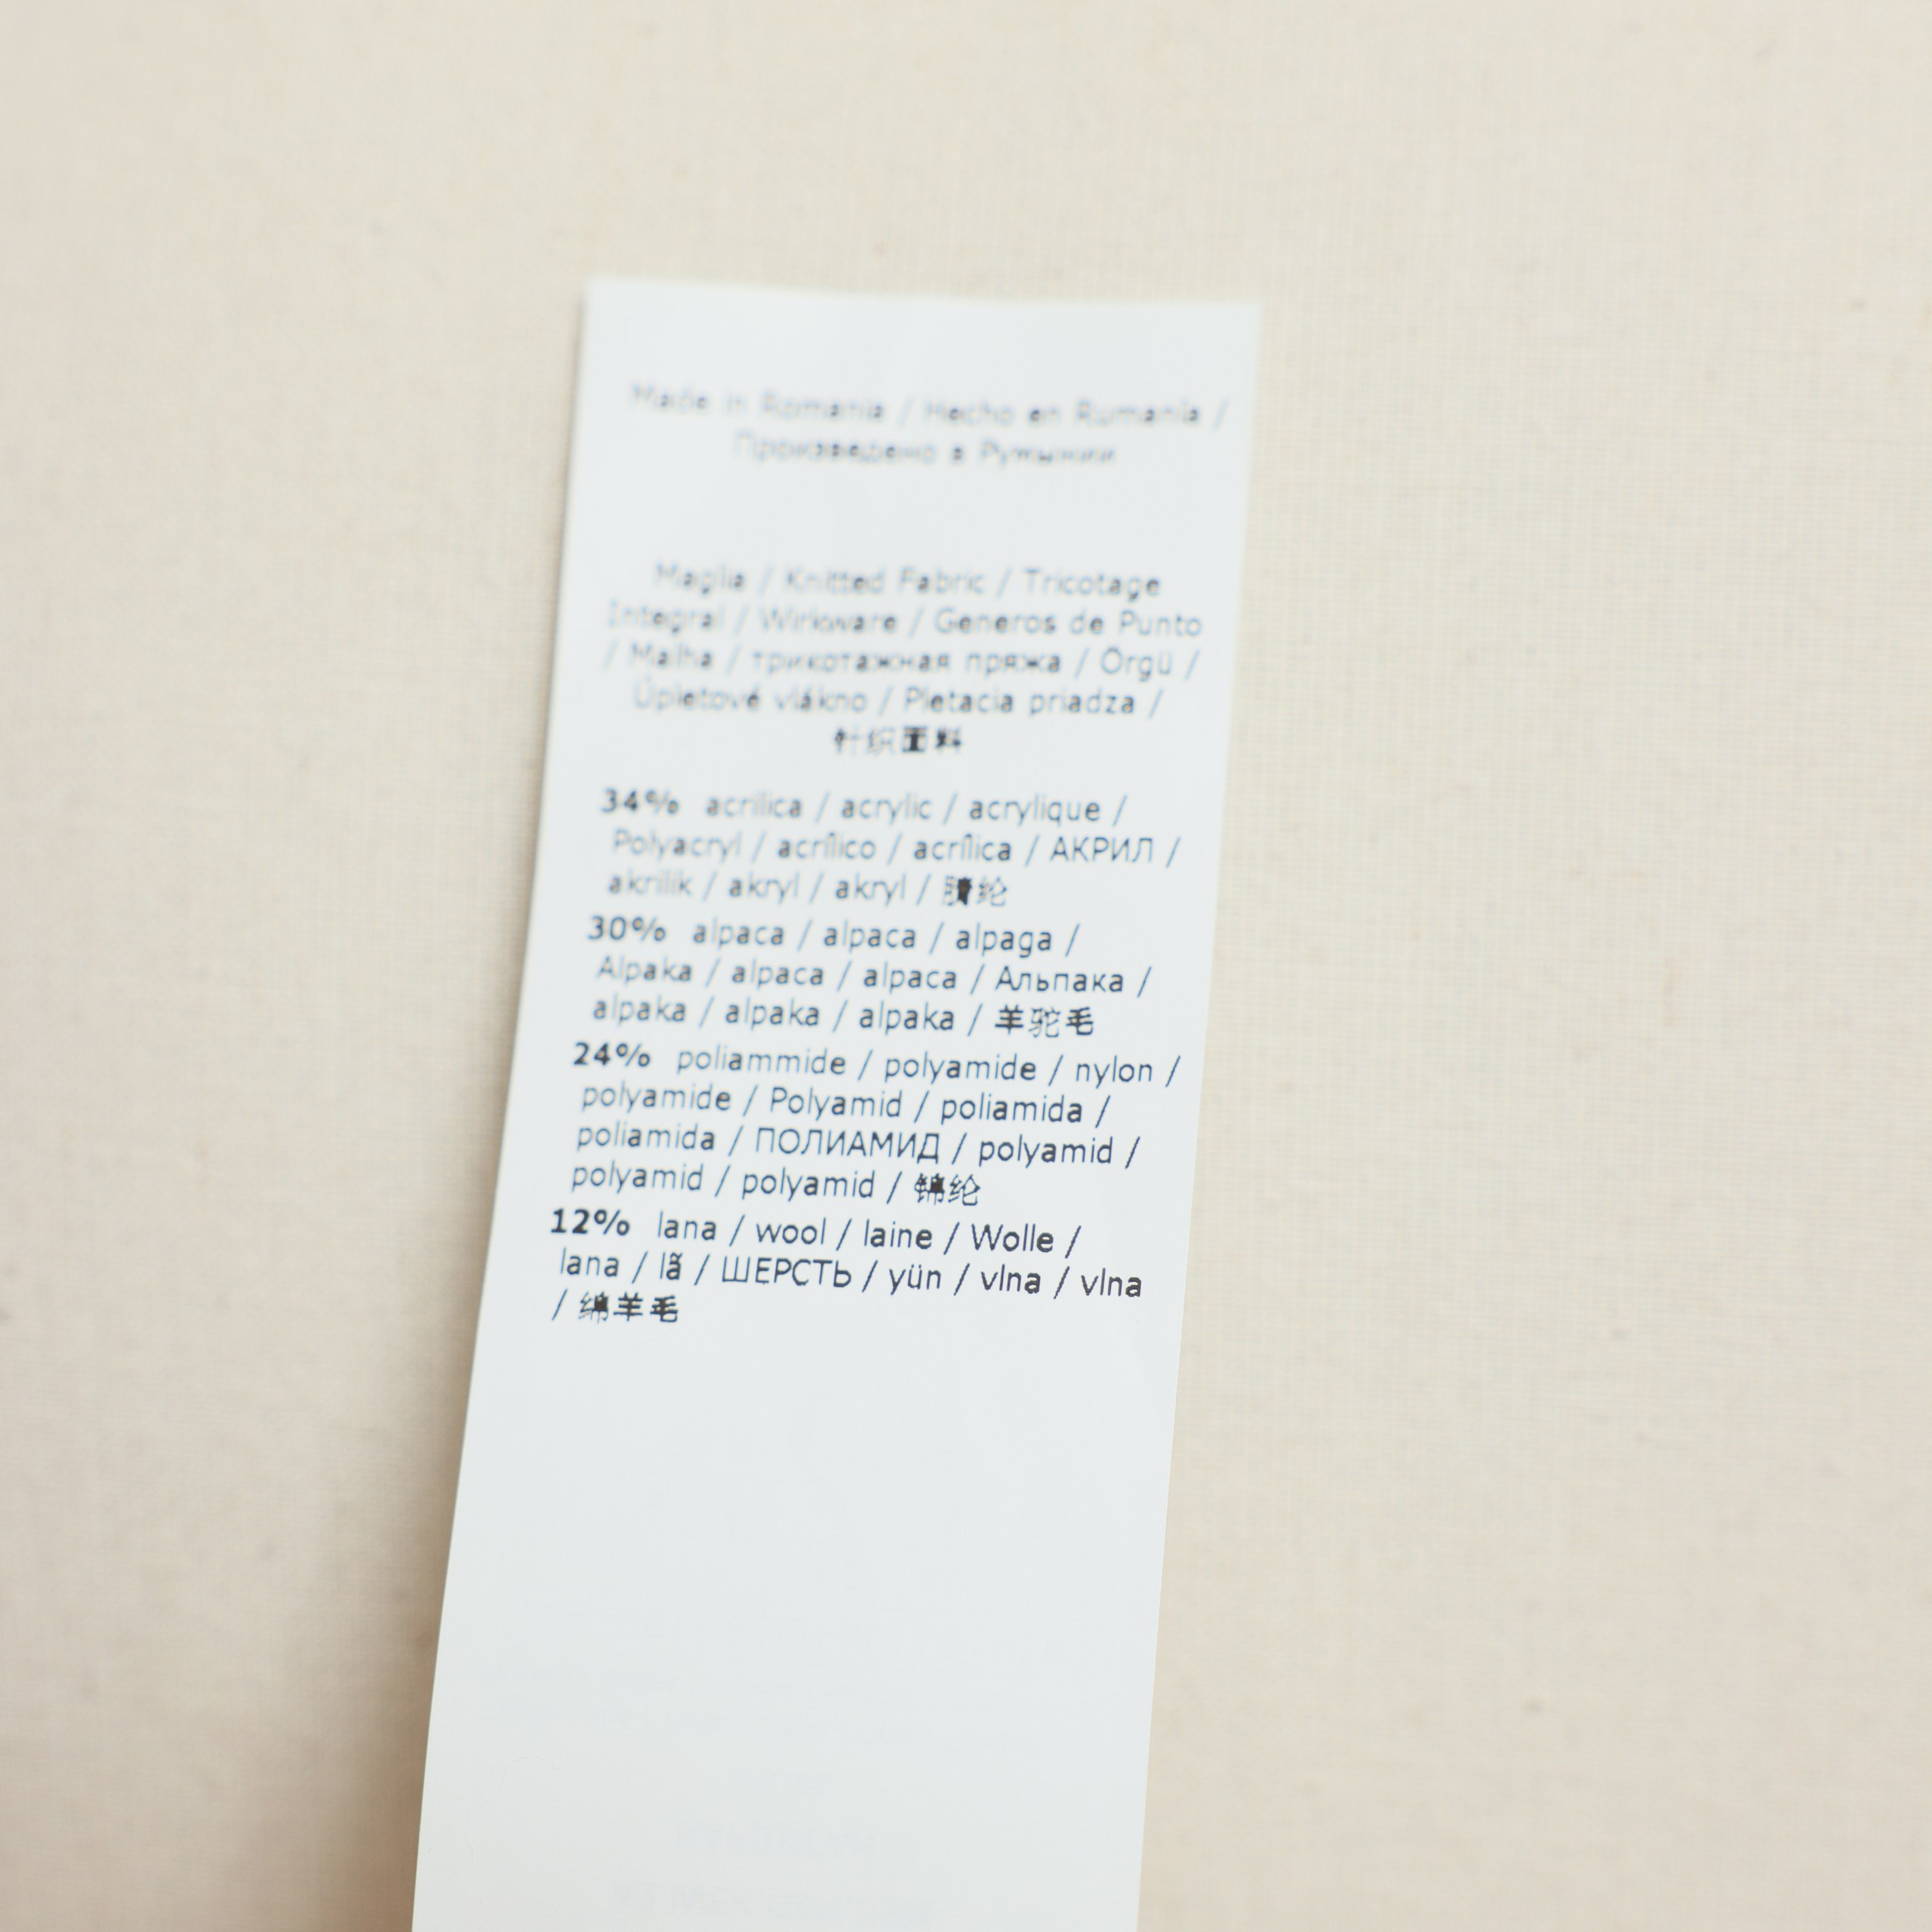 Made in Romania / Hecho en Rumanía /
Произведено в Румынии
Maglia / Knitted Fabric / Tricotage
Integral / Wirkware / Generos de Punto
/ Malha / трикотажная пряжа / Örgü /
Úpletové vlákno / Pletacia priadza /
针织面料
34% acrilica / acrylic / acrylique /
Polyacryl / acrílico / acrílica / АКРИЛ /
akrilik / akryl / akryl / 腈纶
30% alpaca / alpaca / alpaga /
Alpaka / alpaca / alpaca / Альпака /
alpaka / alpaka / alpaka / 羊驼毛
24% poliammide / polyamide / nylon /
polyamide / Polyamid / poliamida /
poliamida / ПОЛИАМИД / polyamid /
polyamid / polyamid / 锦纶
12% lana / wool / laine / Wolle /
lana / lã / ШЕРСТЬ / yün / vlna / vlna
/ 绵羊毛